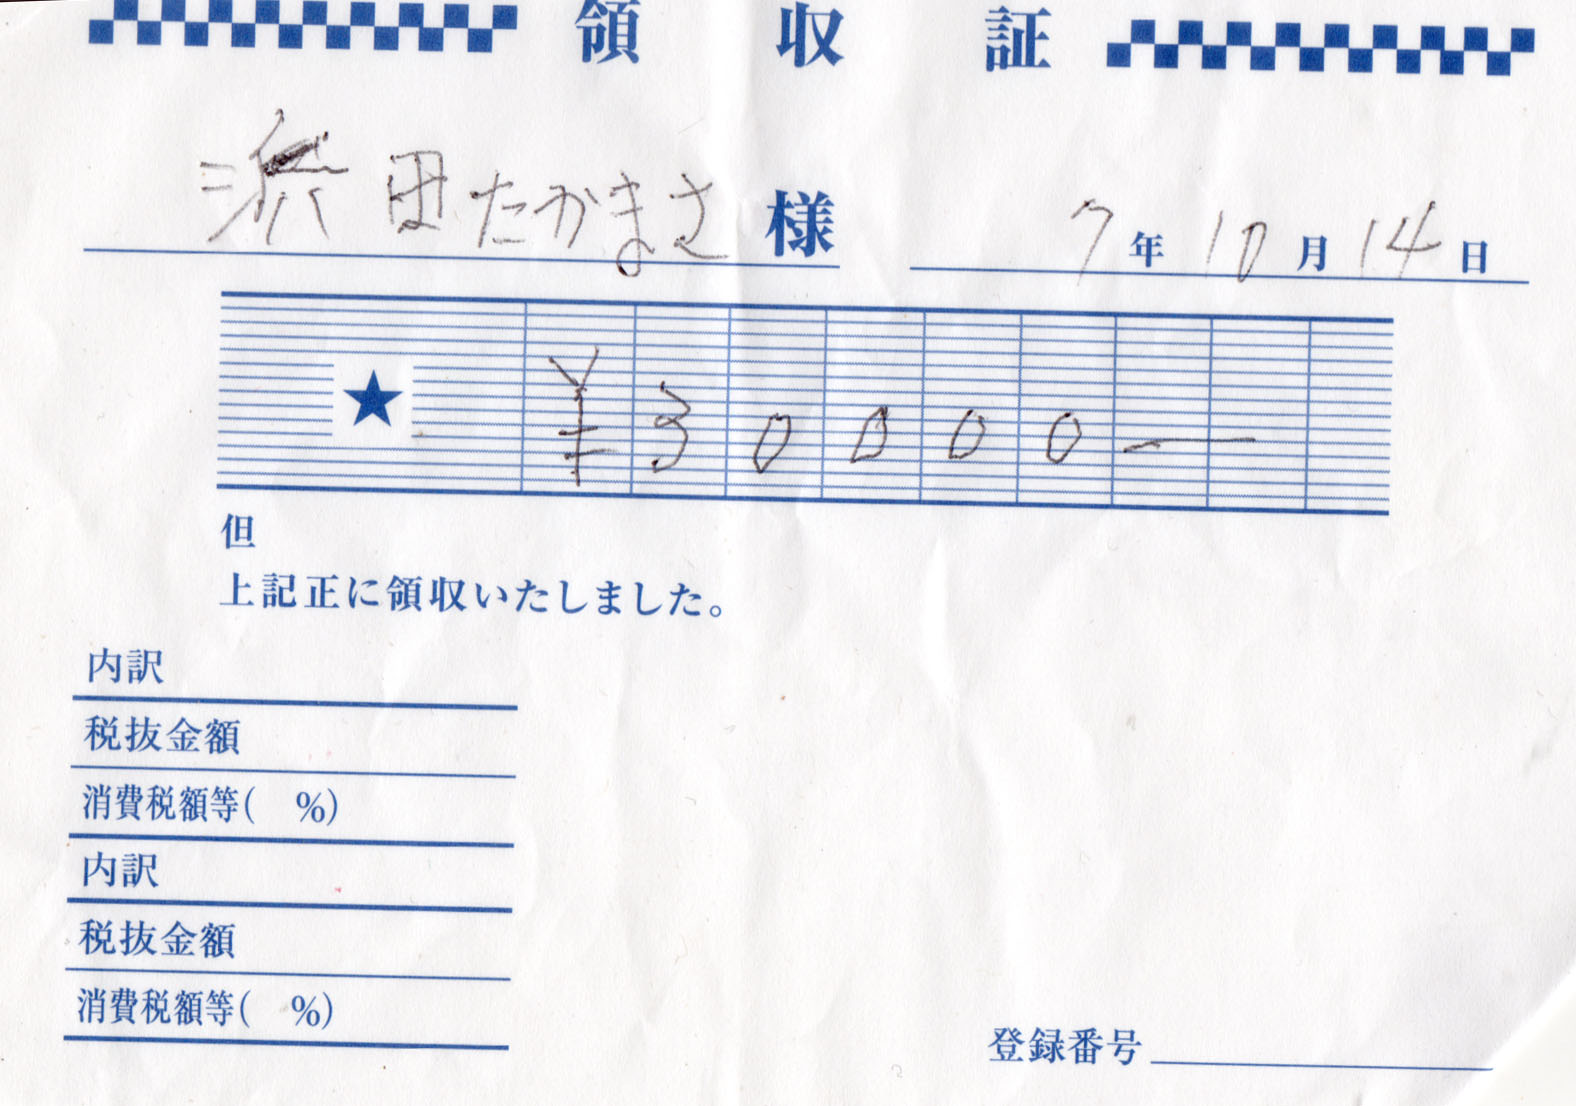 領収証
浜田たかまさ 様 7年10月14日
★ ¥30000―
但
上記正に領収いたしました。
内訳
税抜金額
消費税額等( %)
内訳
税抜金額
消費税額等( %)
登録番号